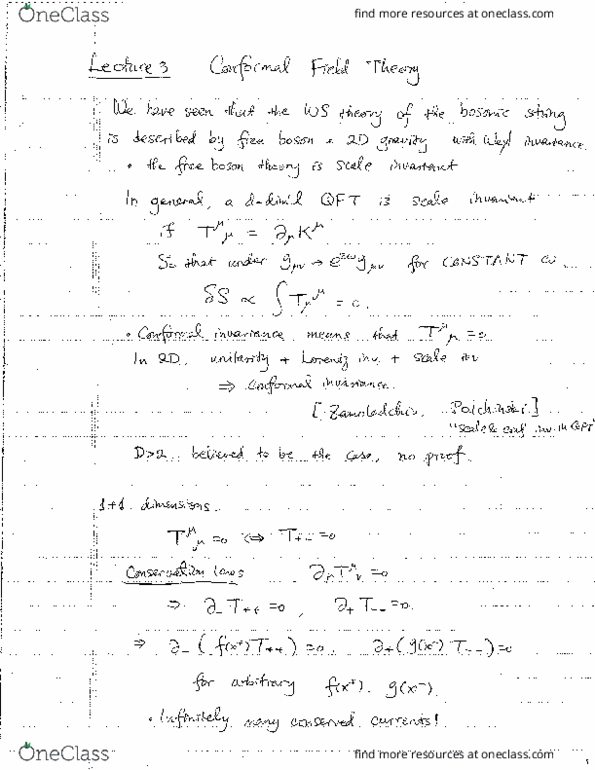 OneClass
find more resources at oneclass.com
Lecture 3 Conformal Field Theory
We have seen that the WS theory of the bosonic string
is described by free boson + 2D gravity with Weyl invariance.
• the free boson theory is scale invariant
In general, a d-dim'l QFT is scale invariant
if T^μ_μ = ∂_μ K^μ
So that under g_μν → e^{2ω} g_μν for CONSTANT ω
δS ∝ ∫ T_μ^μ = 0.
• Conformal invariance means that T^μ_μ = 0
In 2D, unitarity + Lorentz inv. + scale inv
⇒ conformal invariance.
[Zamolodchikov, Polchinski]
"scale & conf inv. in QFT"
D>2 believed to be the case, no proof.
1+1 dimensions.
T^μ_μ = 0 ⇔ T_{+-} = 0
Conservation laws ∂_μ T^μ_ν = 0
⇒ ∂_- T_{++} = 0, ∂_+ T_{--} = 0.
⇒ ∂_- (f(x^+) T_{++}) = 0, ∂_+ (g(x^-) T_{--}) = 0
for arbitrary f(x^+), g(x^-).
• Infinitely many conserved currents!
OneClass
find more resources at oneclass.com
1